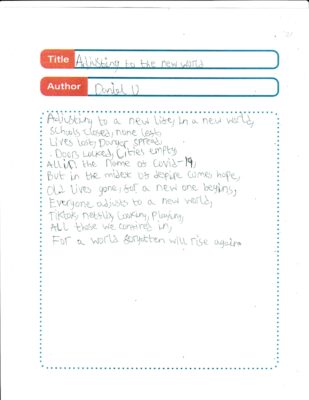 Title Adjusting to the new world
Author Daniel U
Adjusting to a new life, in a new world,
Schools closed, none left,
Lives lost, Danger spread,
Doors Locked, Cities empty,
All in the name of Covid-19,
But in the midst of despire comes hope,
Old lives gone, for a new one begins,
Everyone adjusts to a new world,
Tiktok, netflix, Cooking, Playing,
All those we confined in,
For a world forgotten will rise again